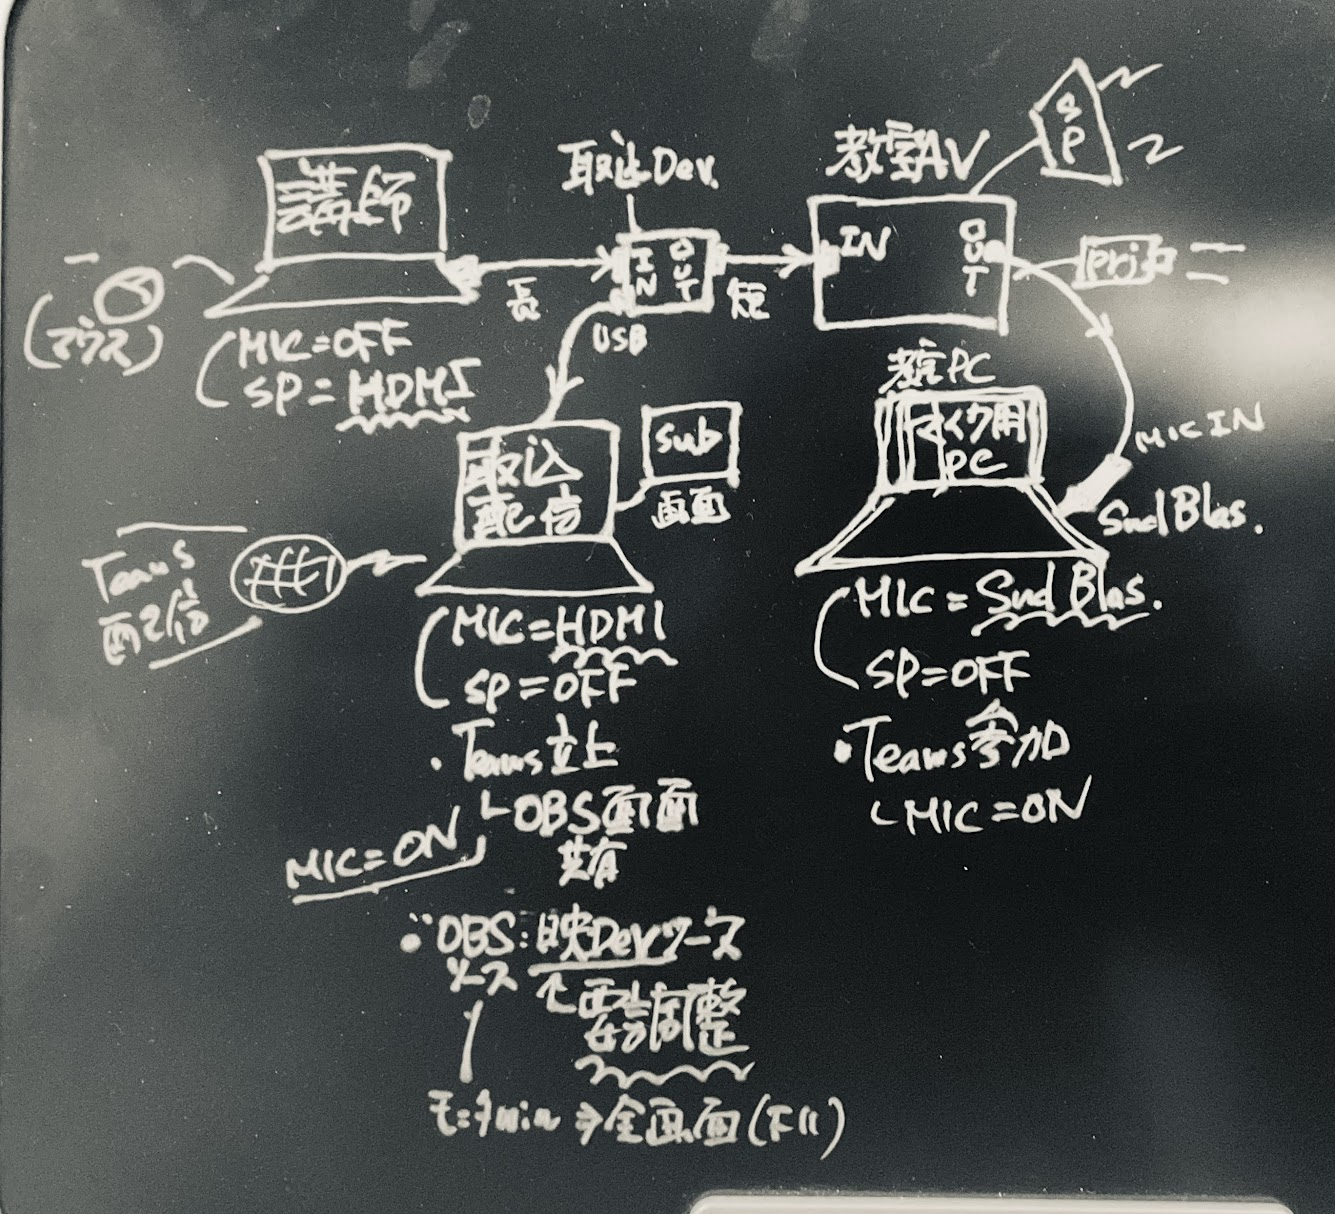 講師
(マウス)
MIC=OFF
SP=HDMI
長
取込Dev.
IN
OUT
USB
短
教室AV
IN
OUT
SP
prj
MIC IN
Snd Blas.
PC
マイク用
PC
MIC=Snd Blas.
SP=OFF
・Teams参加
└MIC=ON
取込
配信
sub
画面
Teams
MIC=HDMI
SP=OFF
・Teams立上
└OBS画面
共有
MIC=ON
OBS:映Devソース
ソース
調整
モニタwin⇒全画面(F11)